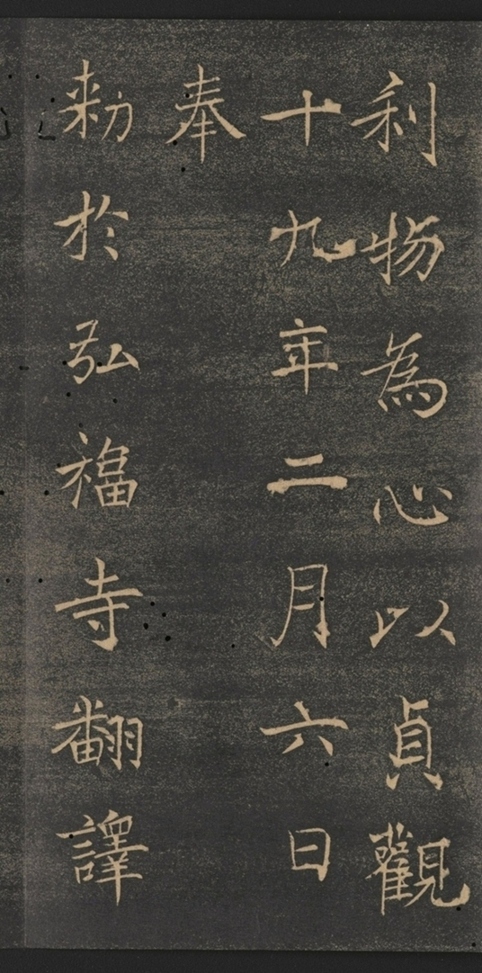 利物為心以貞觀
十九年二月六日
奉
勑於弘福寺翻譯